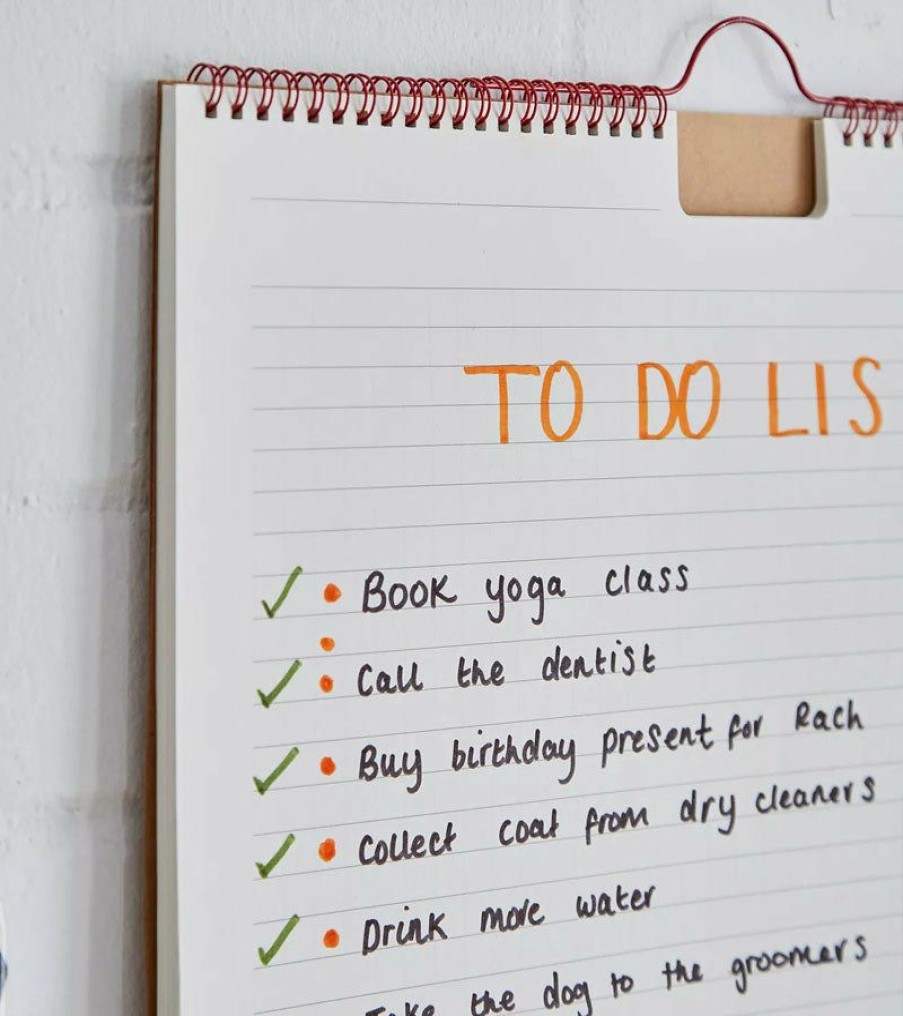 TO DO LIS
✓ • Book yoga class
•
✓ • Call the dentist
✓ • Buy birthday present for Rach
✓ • Collect coat from dry cleaners
✓ • Drink more water
Take the dog to the groomers